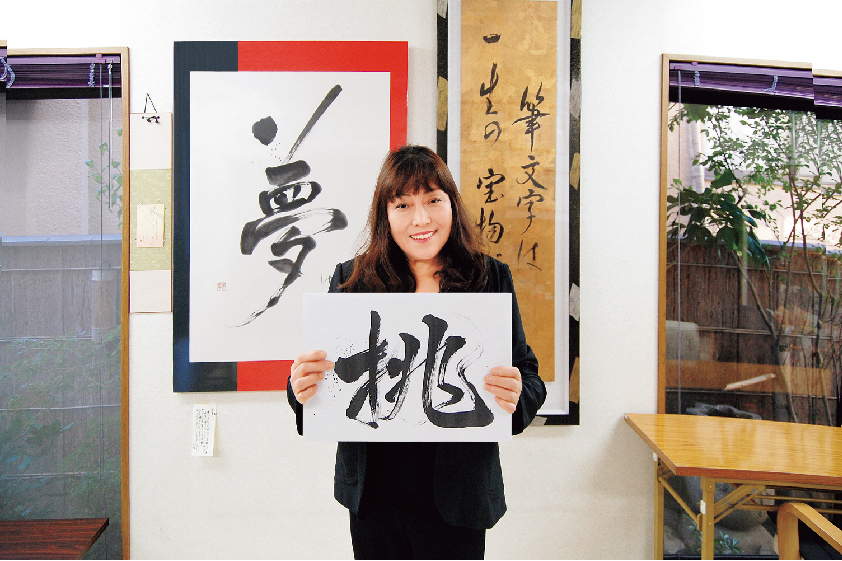 夢
筆文字は
一生の宝物。
挑